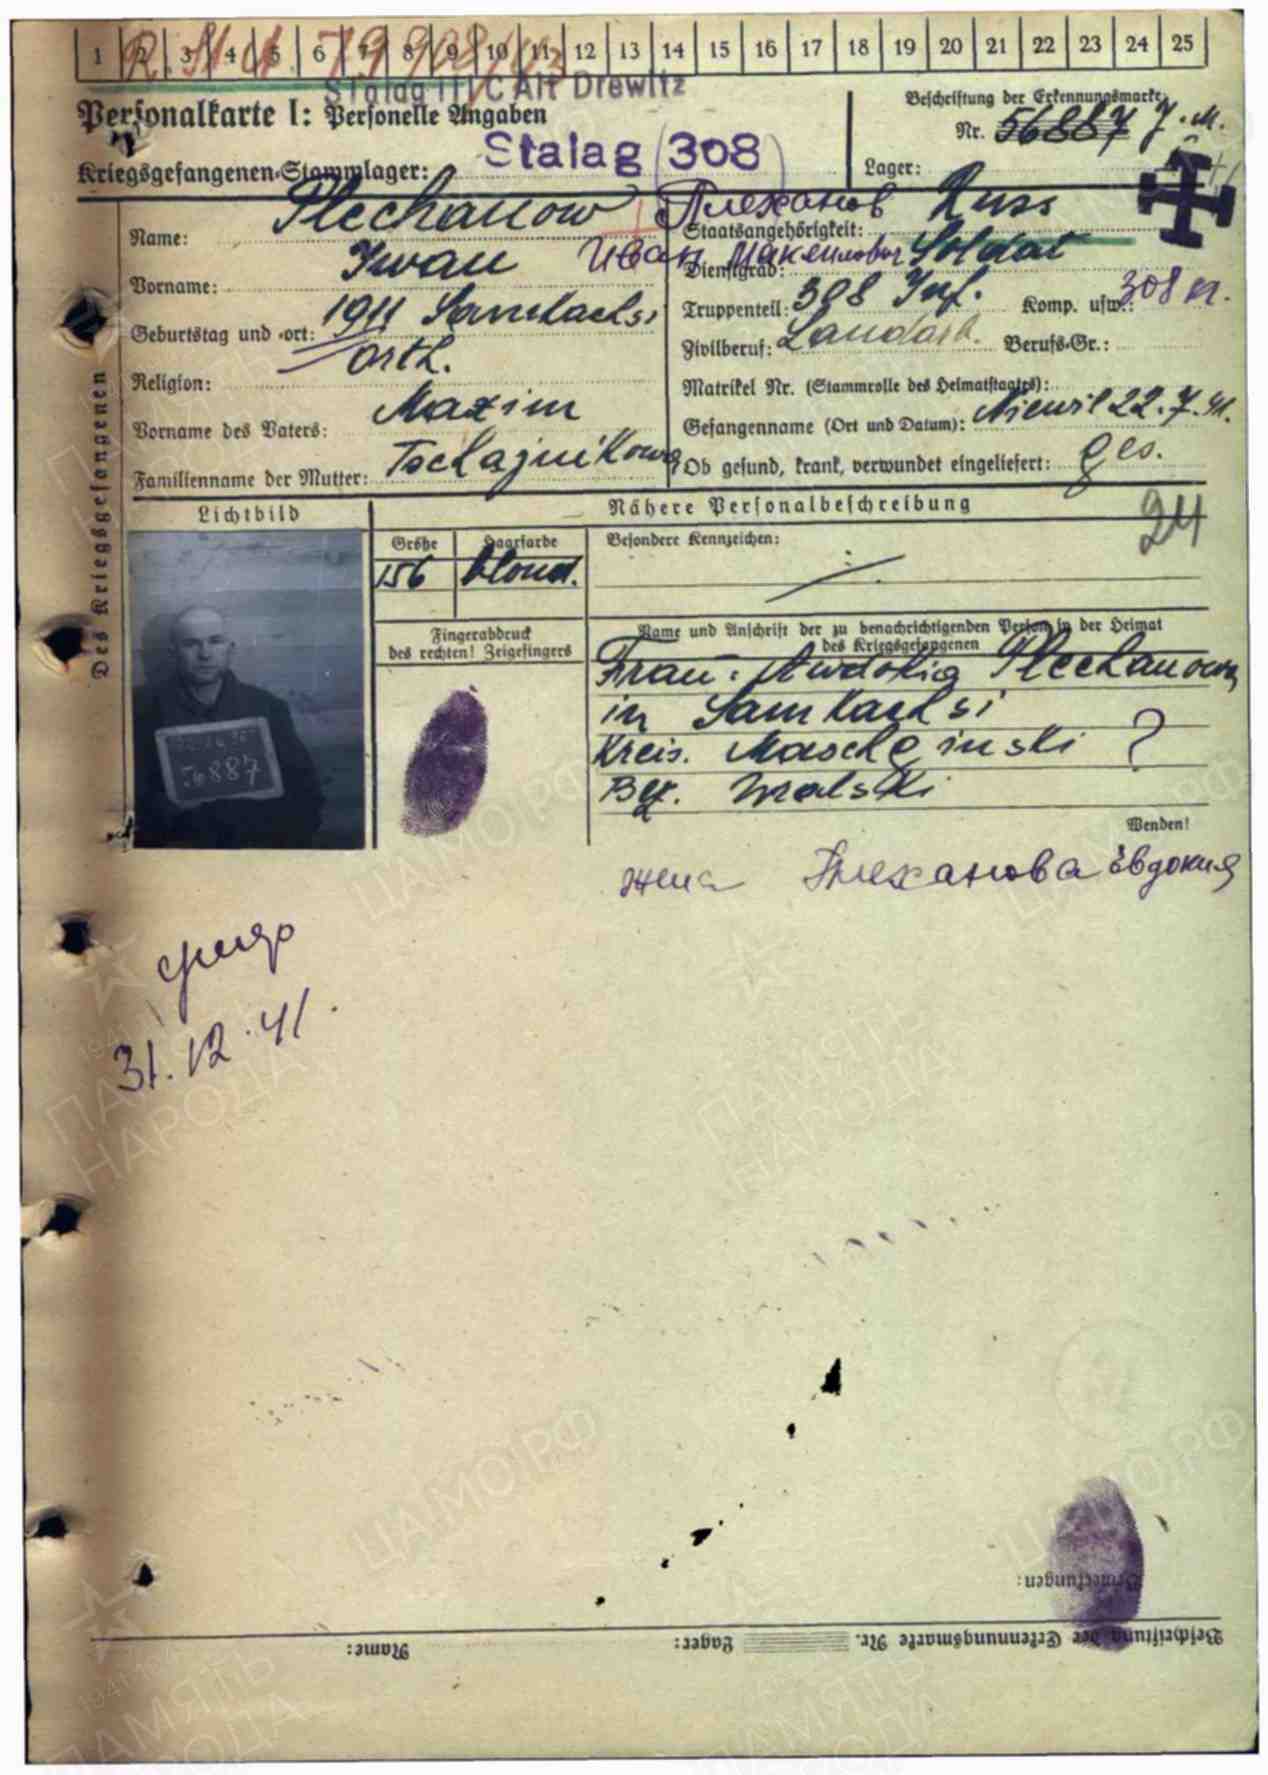 1 2 3 4 5 6 7 8 9 10 11 12 13 14 15 16 17 18 19 20 21 22 23 24 25
Stalag III C Alt Drewitz
Personalkarte I: Personelle Angaben
Beschriftung der Erkennungsmarke
Nr. 56887
Kriegsgefangenen-Stammlager: Stalag (308)
Lager:
Des Kriegsgefangenen
Name: Plechanow Плеханов
Staatsangehörigkeit: Russ
Vorname: Iwan Иван
Dienstgrad: Soldat
Geburtstag und -ort: 1911 Samkachsi
Truppenteil: 308 Inf. Komp. usw.: 308
Religion: orth.
Zivilberuf: Landarb. Berufs-Gr.:
Matrikel Nr. (Stammrolle des Heimatstaates):
Vorname des Vaters: Maxim
Gefangennahme (Ort und Datum): Niewil 22.7.41.
Familienname der Mutter: Tschajnikowa
Ob gesund, krank, verwundet eingeliefert: ges.
Lichtbild
Nähere Personalbeschreibung
24
Größe Haarfarbe
Besondere Kennzeichen:
156 blond.
56887
Fingerabdruck
des rechten! Zeigefingers
Name und Anschrift der zu benachrichtigenden Person in der Heimat
des Kriegsgefangenen
Frau: Awdokia Plechanowa
in Samkachsi
Kreis. Maschginski ?
Bez. Uralski
Wenden!
жена Плеханова Евдокия
31.12.41.
Bemerkungen:
Beschriftung der Erkennungsmarke Nr. Lager: Name:
ПАМЯТЬ НАРОДА
ЦАМО.РФ